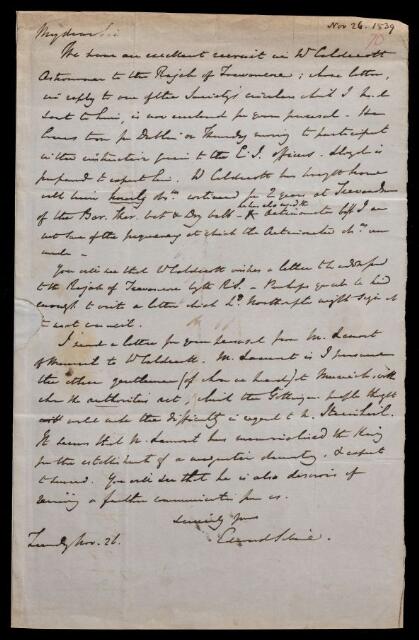 Nov 26. 1839
My dear Sir
We have an excellent recruit in Mr Caldecott
Astronomer to the Rajah of Travancore; whose letter,
in reply to one of the Society's circulars which I had
sent to him, is now enclosed for your perusal. He
leaves town for Dublin on Thursday evening to participate
in the instruction given to the E.I. officers. Lloyd is
prepared to expect him. Mr Caldecott has brought home
with him hourly obsns. continued for 2 years at Trevandrum
of the Bar. Ther. wet & dry bulb &
not sure of the frequency at which the obsns. were
made -
You will see that Mr Caldecott wishes a letter to be addressed
to the Rajah of Travancore by the R.S. Perhaps you will be kind
enough to write a letter which Ld. Northampton might sign at
the next council.
I send a letter for your perusal from Mr. Lamont
of Munich to Mr Caldecott. Mr. Lamont is I presume
the other gentleman (of whom we heard) at Munich with
whom the authorities act, which the Göttingen people thought
would make the difficulty in regard to Mr. Steinheil.
It seems that Mr Lamont has memorialised the King
for the establishment of a magnetic observatory, & expects
to succeed. You will see that he is also desirous of
receiving a further communication from us.
Sincerely yours
Edward Sabine.
Tuesday Nov. 26.